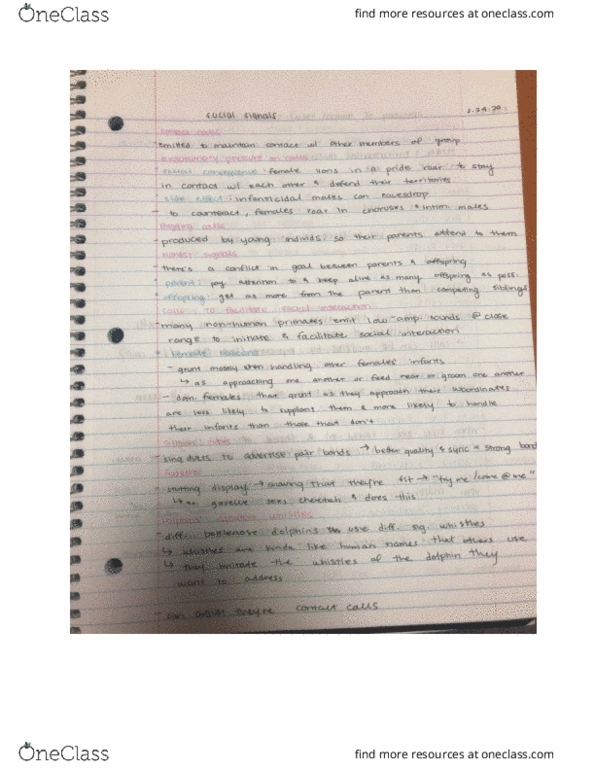 OneClass
find more resources at oneclass.com
social signals
2.24.20
contact calls
- emitted to maintain contact w/ other members of group
evolutionary pressure on calls
- critical consequence female lions in a pride roar to stay
in contact w/ each other & defend their territories
- side effect infanticidal males can eavesdrop
- to counteract, females roar in choruses & intim males
begging calls
- produced by young individs so their parents attend to them
honest signals
- there's a conflict in goal between parents & offspring
parent: pay attention to & keep alive as many offspring as poss.
offspring: get as more from the parent than competing siblings
calls to facilitate social interaction
- many non-human primates emit low-amp sounds @ close
range to initiate & facilitate social interaction
female baboons
- grunt mossy when handling other females' infants
↳ as approaching one another or feed near or groom one another
- dom. females that grunt as they approach their subordinates
are less likely to supplant them & more likely to handle
their infants than those that don't
duets
- sing duets to advertise pair bonds → better quality & sync = strong bond
- stotting display → showing that they're fit → "try me / come @ me"
↳ ex. gazelle sees cheetah & does this
dolphin signature whistles
- diff. bottlenose dolphins use diff. sig. whistles
↳ whistles are kinda like human names that others use
↳ they imitate the whistles of the dolphin they
want to address
- can assist they're contact calls
OneClass
find more resources at oneclass.com